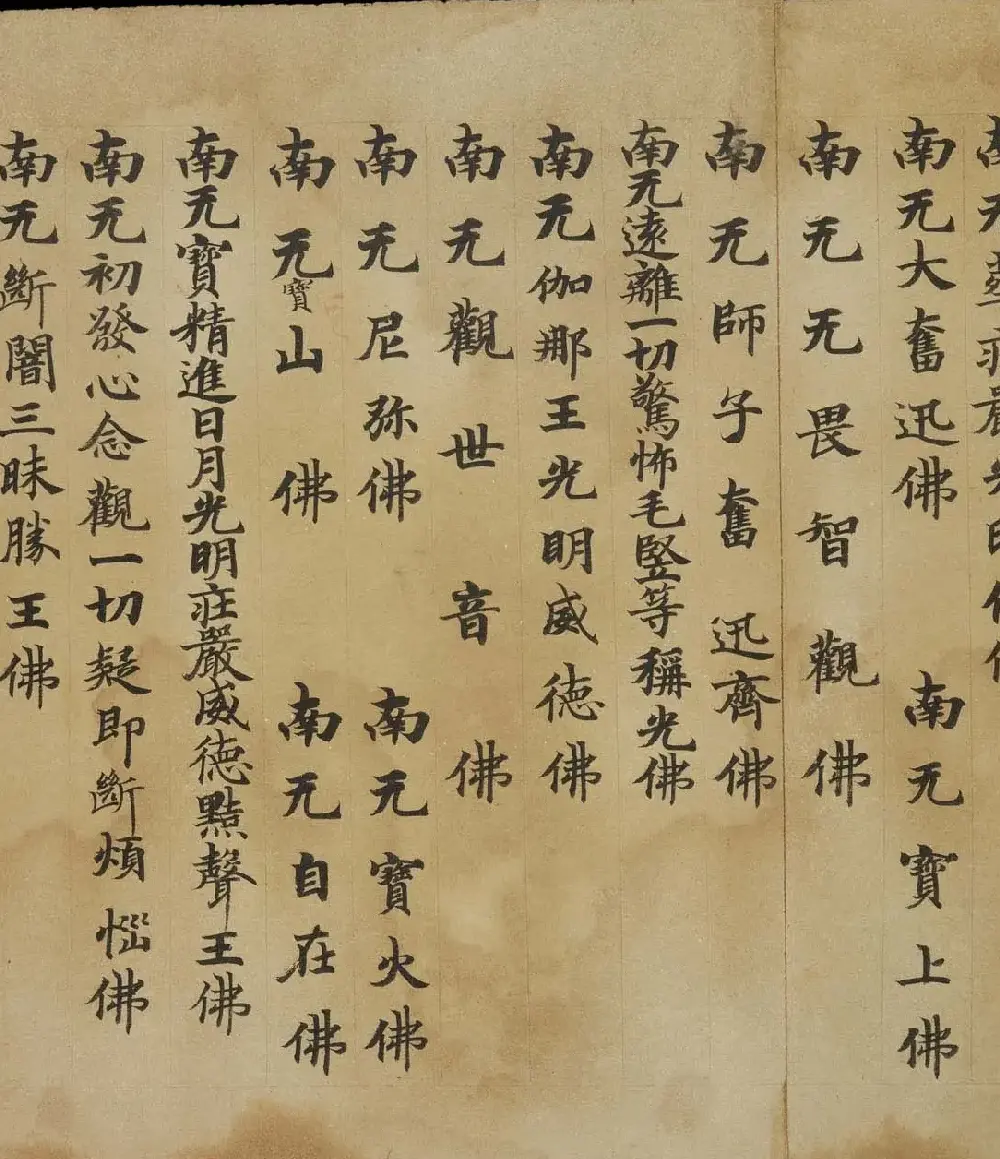 南无𦬇疰嚴光明佛
南无大奮迅佛　南无寶上佛
南无无畏智觀佛
南无師子奮迅齊佛
南无遠離一切驚怖毛竪等稱光佛
南无伽那王光明威德佛
南无觀世音佛
南无尼弥佛　南无寶火佛
南无寶山佛　南无自在佛
南无寶精進日月光明疰嚴威德點聲王佛
南无初發心念觀一切疑即斷煩惱佛
南无斷闇三昧勝王佛